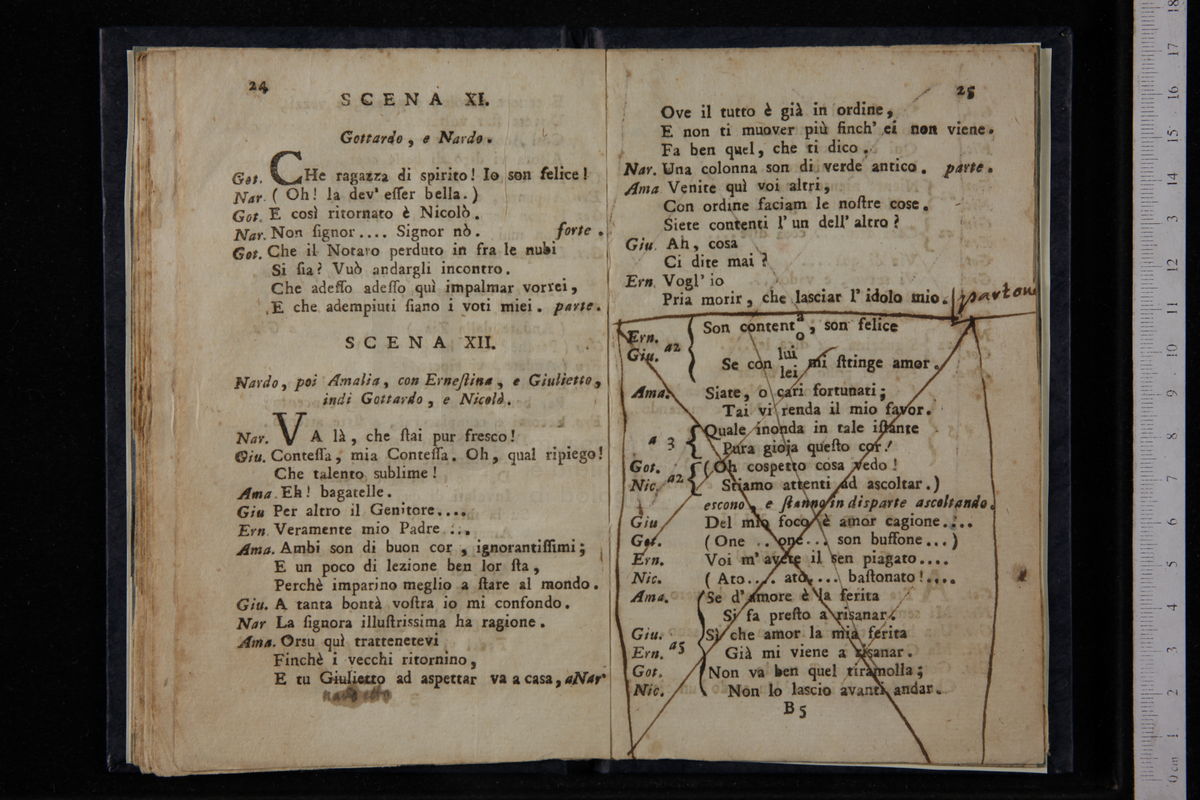 24
SCENA XI.
Gottardo, e Nardo.
Got. CHe ragazza di spirito! Io son felice!
Nar. (Oh! la dev' esser bella.)
Got. E così ritornato è Nicolò.
Nar. Non signor.... Signor nò. forte.
Got. Che il Notaro perduto in fra le nubi
Si sia? Vuò andargli incontro.
Che adesso adesso quì impalmar vorrei,
E che adempiuti siano i voti miei. parte.
SCENA XII.
Nardo, poi Amalia, con Ernestina, e Giulietto,
indi Gottardo, e Nicolò.
Nar. VA là, che stai pur fresco!
Giu. Contessa, mia Contessa. Oh, qual ripiego!
Che talento sublime!
Ama. Eh! bagatelle.
Giu Per altro il Genitore....
Ern. Veramente mio Padre ....
Ama. Ambi son di buon cor, ignorantissimi;
E un poco di lezione ben lor sta,
Perchè imparino meglio a stare al mondo.
Giu. A tanta bontà vostra io mi confondo.
Nar La signora illustrissima ha ragione.
Ama. Orsu quì trattenetevi
Finchè i vecchi ritornino,
E tu Giulietto ad aspettar va a casa, a Nar
25
Ove il tutto è già in ordine,
E non ti muover più finch' ei non viene.
Fa ben quel, che ti dico.
Nar. Una colonna son di verde antico. parte.
Ama Venite quì voi altri,
Con ordine faciam le nostre cose.
Siete contenti l' un dell' altro?
Giu. Ah, cosa
Ci dite mai?
Ern. Vogl' io
Pria morir, che lasciar l' idolo mio. partono
Ern. Giu. a2 { Son content a/o, son felice
Se con lui/lei mi stringe amor.
Ama. Siate, o cari fortunati;
Tai vi renda il mio favor.
a 3 { Quale inonda in tale istante
Pura gioja questo cor!
Got. Nic. a2 { (Oh cospetto cosa vedo!
Stiamo attenti ad ascoltar.)
escono, e stanno in disparte ascoltando.
Giu Del mio foco è amor cagione....
Got. (One .. one... son buffone...)
Ern. Voi m' avete il sen piagato....
Nic. (Ato.... ato.... bastonato!....
Ama. Se d' amore è la ferita
Si fa presto a risanar.
Giu. Ern. a5 Sì che amor la mia ferita
Già mi viene a risanar.
Got. Non va ben quel tiramolla;
Nic. Non lo lascio avanti andar.
B 5